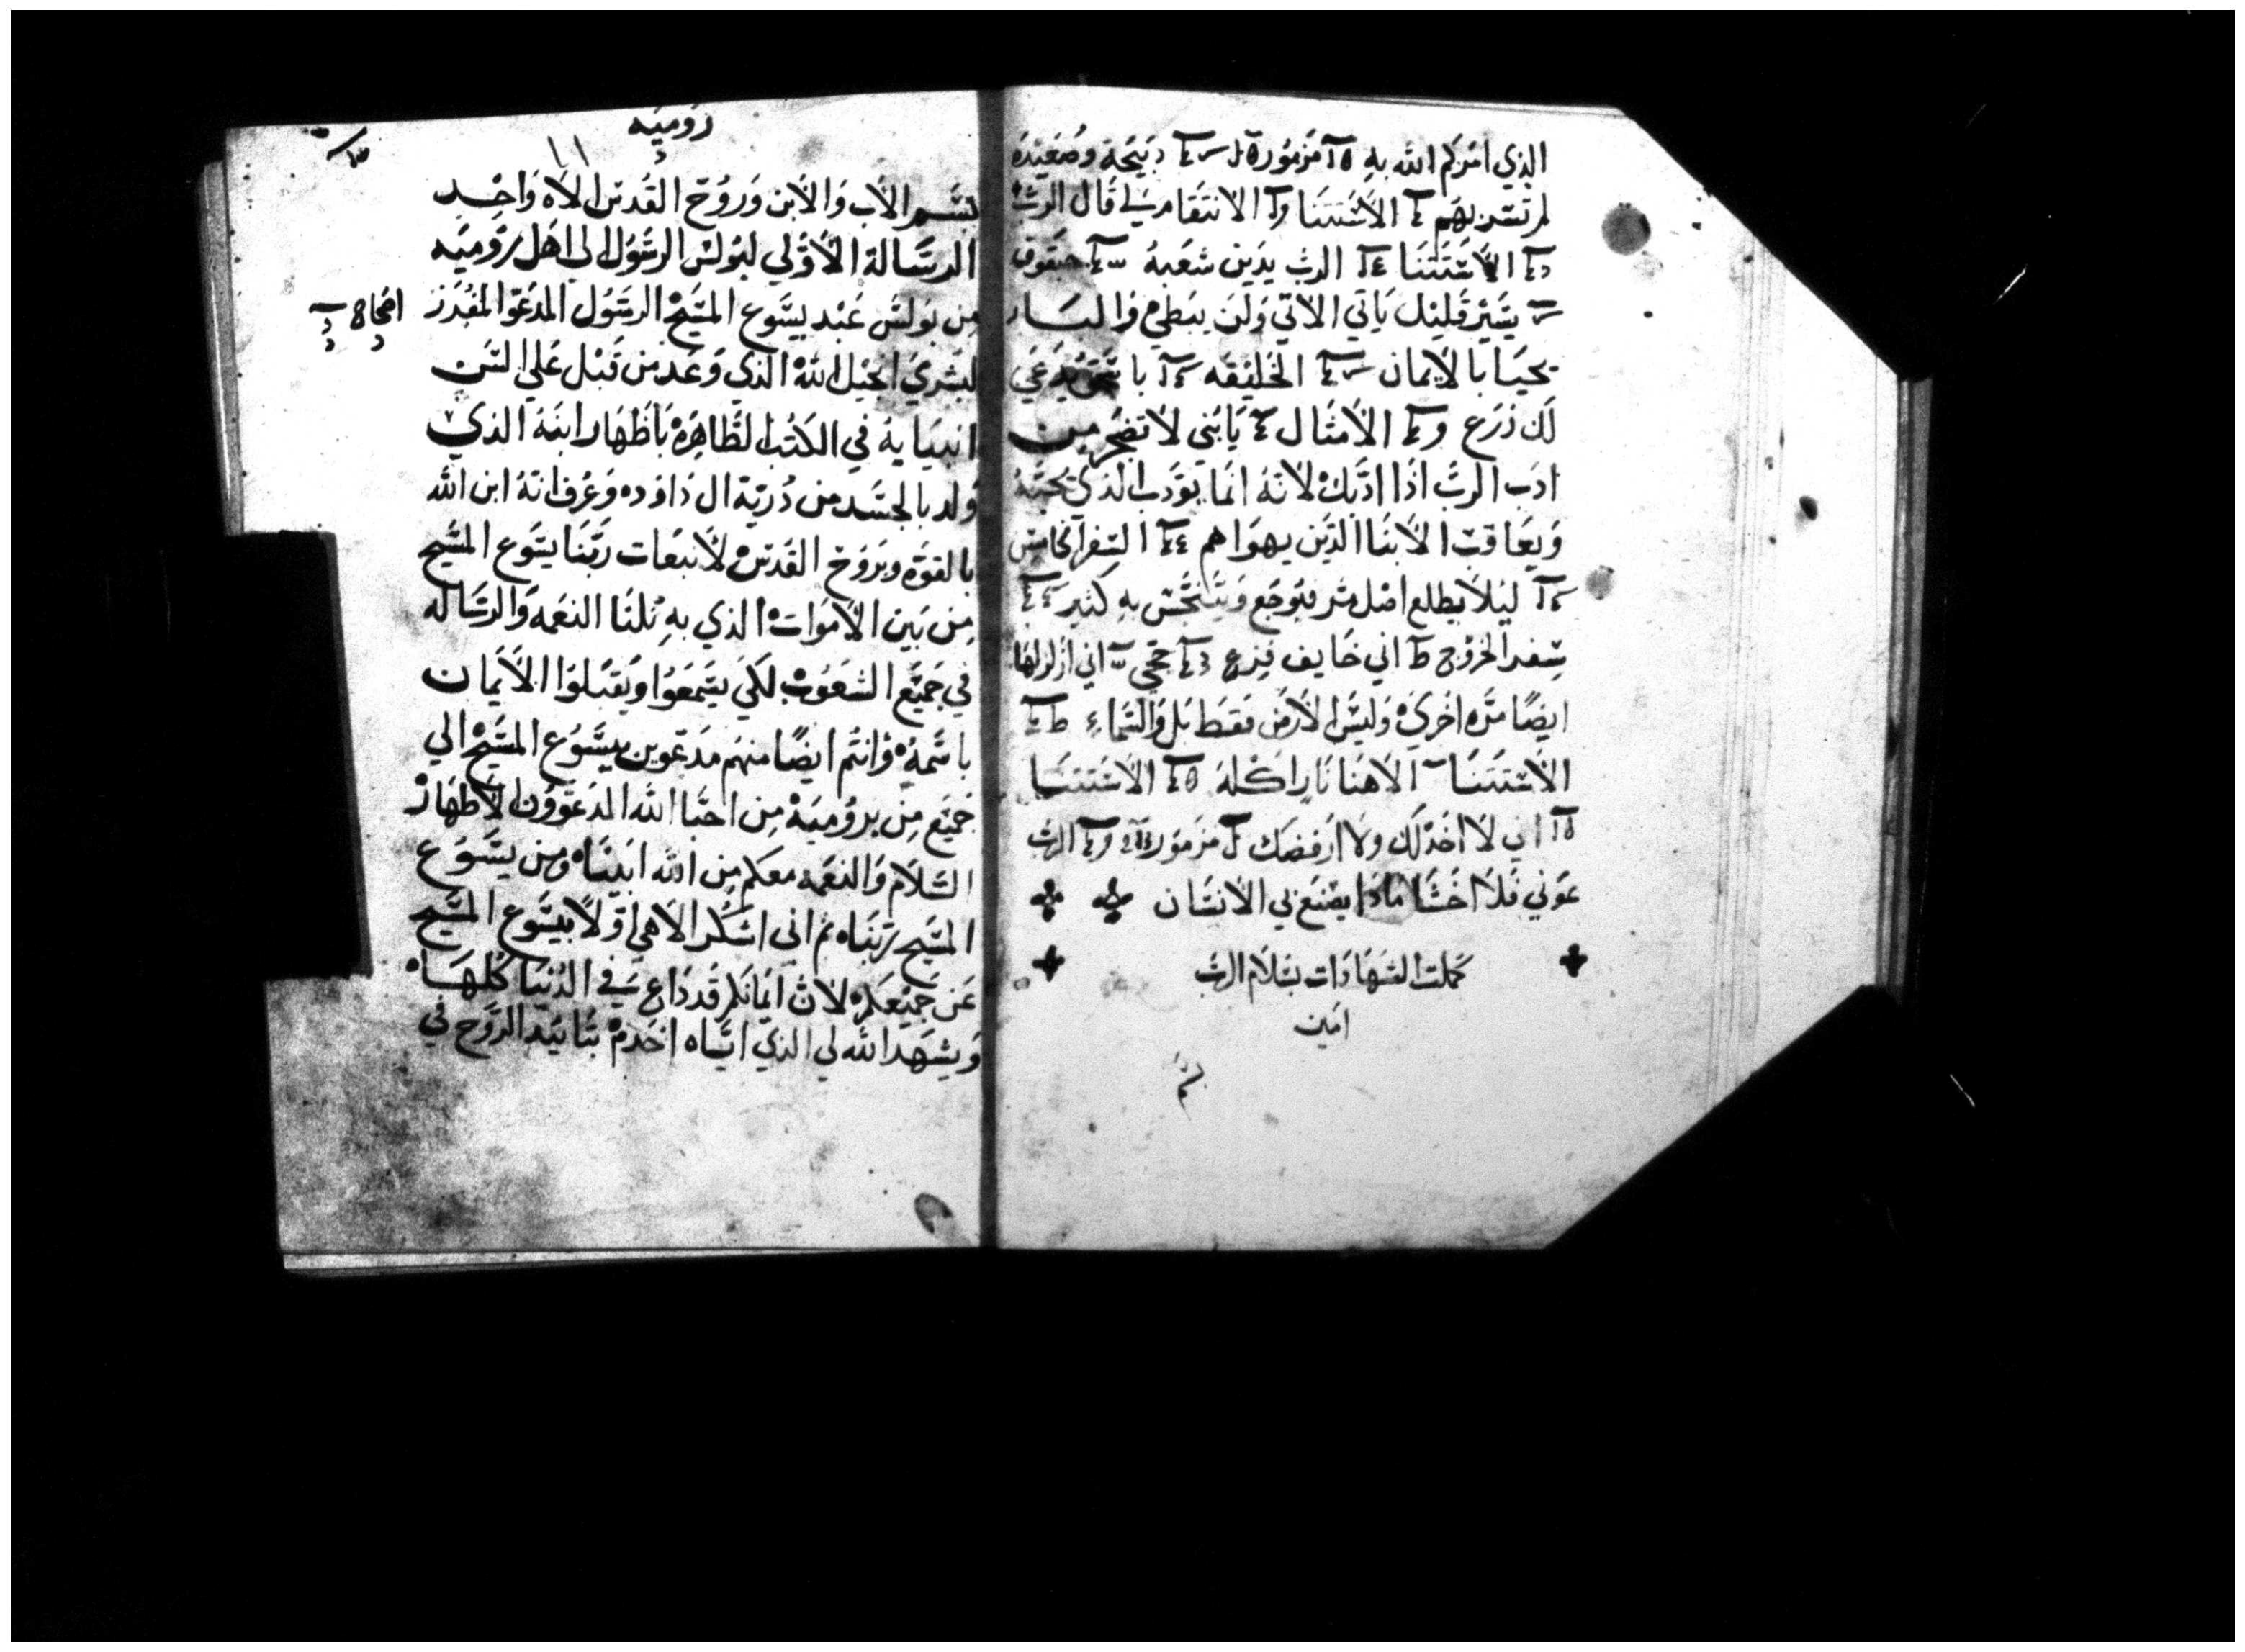 الذي امركم الله به مزمور دبيحة وصعيده
لم تسر بهم الاستتنا الانتقام لي قال الرب
الاستتنا الرب يدين شعبه حبقوق
يسير قليل ياتي الاتي ولن يبطي والبار
يحيا بالايمان الخليقه يدعي
لك زرع الامثال يا بني لا تضجر من
ادب الرب اذا ادبك لانه انما يودب الذي يحبه
ويعاقب الابنا الذين يهواهم السفر الخامس
ليلا يطلع اصل مر فيوجع ويتنجس به كثير
سفر الخروج اني خايف فزع حجي اني ازلزلها
ايضًا مره اخري وليس الارض فقط بل والسماء
الاستتنا الاهنا نار اكله الاستتنا
اني لا اخذلك ولا ارفضك مزمور الرب
عوني فلا اخشا ماذا يصنع بي الانسان
كملت الشهادات بسلام الرب
امين
روميه
بسم الاب والابن وروح القدس الاه واحد
الرسالة الاولي لبولس الرسول الي اهل روميه
من بولس عبد يسوع المسيح الرسول المدعو المفرز
اصحاح
لبشري انجيل الله الذي وعد من قبل علي السن
انبيايه في الكتب الطاهره باظهار ابنه الذي
ولد بالجسد من ذرية ال داود وعرف انه ابن الله
بالقوه وبروح القدس لانبعات ربنا يسوع المسيح
من بين الاموات الذي به نلنا النعمه والرساله
في جميع الشعوب لكي يسمعوا ويقبلوا الايمان
باسمه وانتم ايضًا منهم مدعوين بيسوع المسيح الي
جميع من بروميه من احبا الله المدعوون الاطهار
السلام والنعمه معكم من الله ابينا ومن يسوع
المسيح ربنا ثم اني اشكر الاهي اولا بيسوع المسيح
عن جميعكم لان ايمانكم قد داع في الدنيا كلها
ويشهد الله لي الذي اياه اخدم بتاييد الروح في